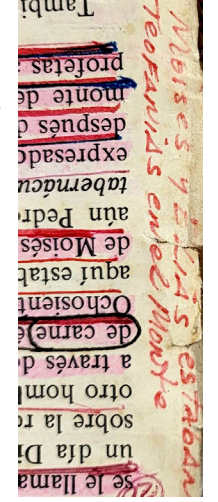 se le llama
un día Di
sobre la ro
otro hom
a través d
de carne
Ochosient
aquí estab
de Moisés
aún Pedr
tabernácu
expresad
después d
monte de
profetas
Tambi
Moises y Elias estaban
Teofanias en el Monte